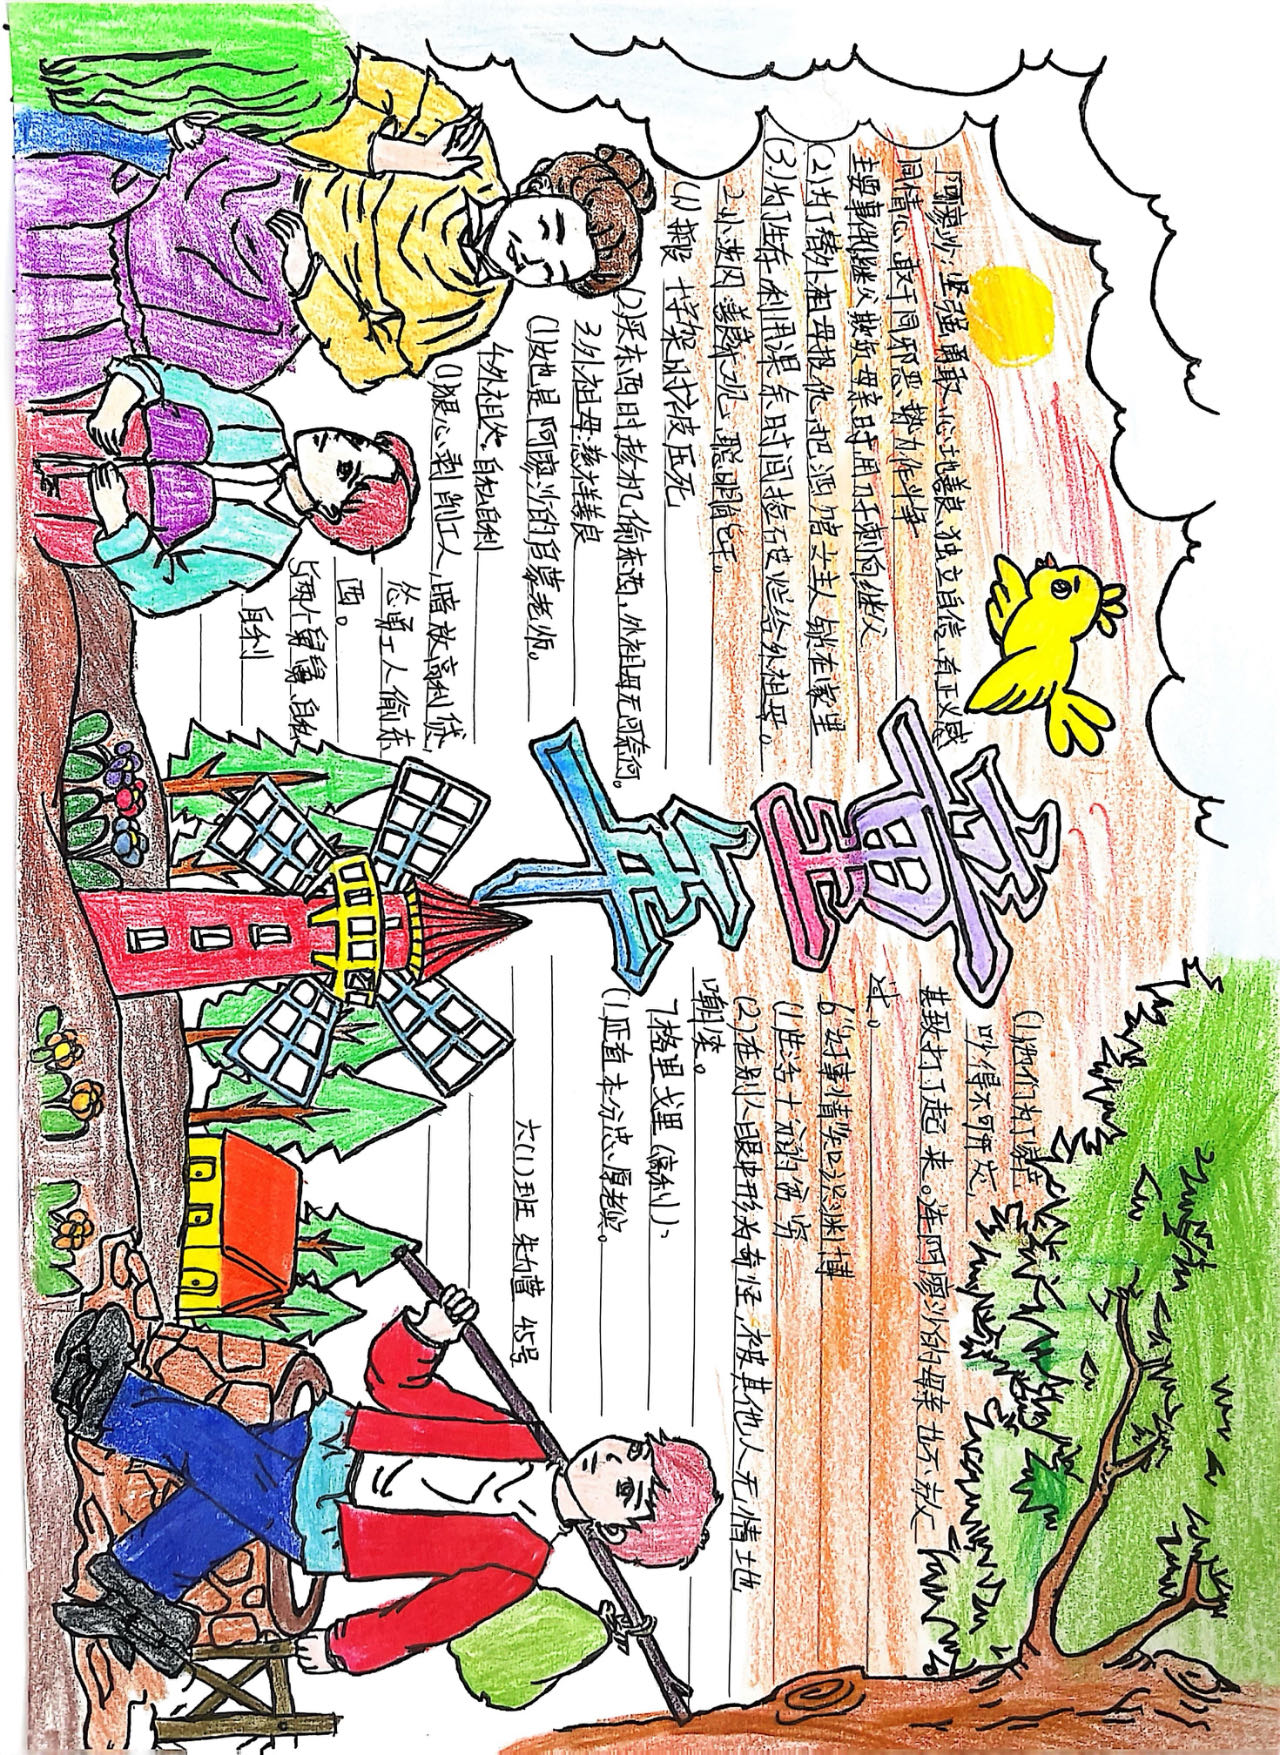 童年
阿廖沙:坚强勇敢、心地善良、独立自信、有正义感
同情心、敢于同邪恶势力作斗争
主要事例:继父欺负母亲时,用刀子刺向继父
(2)为了替外祖母报仇,把酒馆女主人锁在家里
(3)为了生存,利用课余时间捡石皮烂给外祖母。
2小茨冈:善良乐观、聪明能干。
(1)搬 十字架时被压死
(2)买东西时趁机偷东西,外祖母无可奈何。
3外祖母:慈祥善良
(1)她是阿廖沙的启蒙老师。
4外祖父:自私自利
(1)狠心剥削工人,暗放高利贷,
怂恿工人偷东
西。
5两个舅舅:自私
自利
(1)他们为了家产
吵得不可开交,
甚致打了起来。连阿廖沙的母亲也不放
过。
6"好事情":知识渊博
(1生活十分的穷
(2)在别人眼中形为奇怪,被其他人无情土地
嘲凌。
7格里戈里(高利):
(1正直本分忠厚老实。
六(1)班 45号